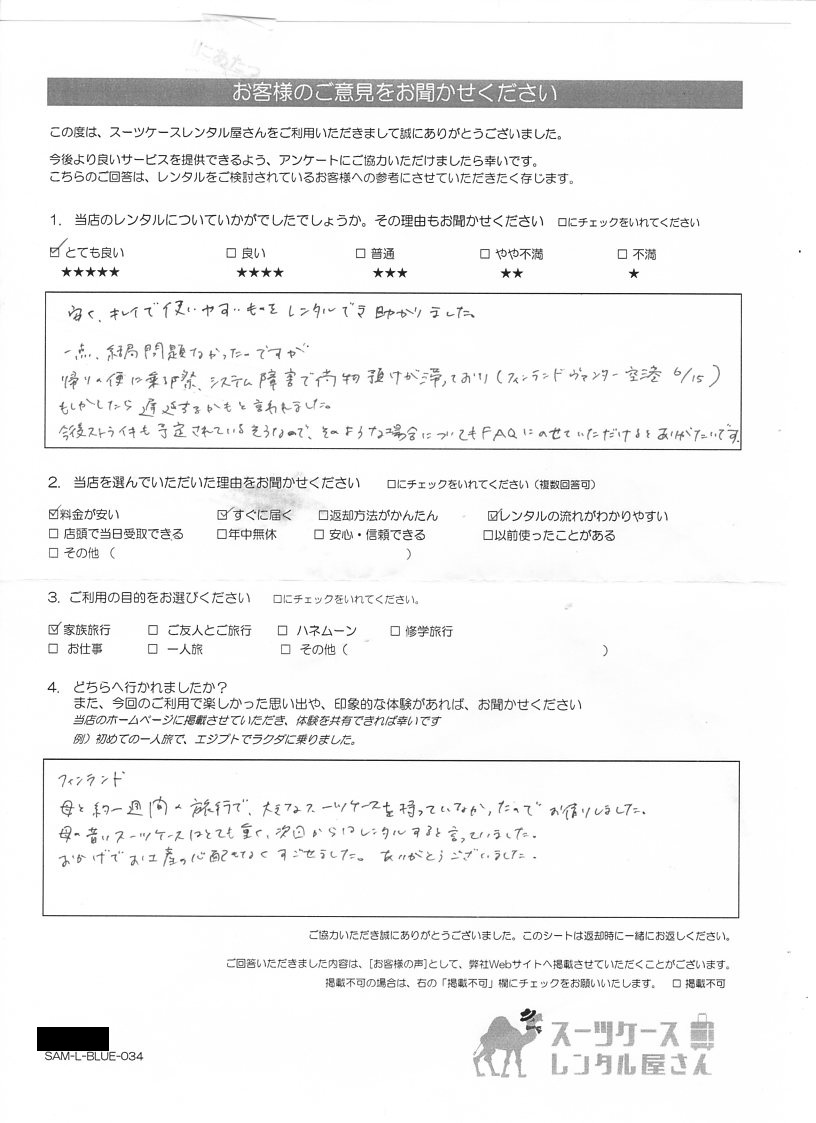 お客様のご意見をお聞かせください
この度は、スーツケースレンタル屋さんをご利用いただきまして誠にありがとうございました。
今後より良いサービスを提供できるよう、アンケートにご協力いただけましたら幸いです。
こちらのご回答は、レンタルをご検討されているお客様への参考にさせていただきたく存じます。
1. 当店のレンタルについていかがでしたでしょうか。その理由もお聞かせください □にチェックをいれてください
☑とても良い □ 良い □ 普通 □ やや不満 □ 不満
★★★★★ ★★★★ ★★★ ★★ ★
安く、キレイで使いやすいものをレンタルでき助かりました。
一点、結局問題なかったのですが
帰りの便に乗る際、システム障害で荷物預けが滞っており(フィンランドヴァンター空港 6/15)
もしかしたら遅延するかもと言われました。
今後ストライキも予定されているそうなので、そのような場合についてもFAQにのせていただけるとありがたいです。
2. 当店を選んでいただいた理由をお聞かせください □にチェックをいれてください(複数回答可)
☑料金が安い ☑すぐに届く □返却方法がかんたん ☑レンタルの流れがわかりやすい
□ 店頭で当日受取できる □年中無休 □ 安心・信頼できる □以前使ったことがある
□ その他 ( )
3. ご利用の目的をお選びください □にチェックをいれてください。
☑家族旅行 □ ご友人とご旅行 □ ハネムーン □ 修学旅行
□ お仕事 □ 一人旅 □ その他 ( )
4. どちらへ行かれましたか?
また、今回のご利用で楽しかった思い出や、印象的な体験があれば、お聞かせください
当店のホームページに掲載させていただき、体験を共有できれば幸いです
例)初めての一人旅で、エジプトでラクダに乗りました。
フィンランド
母と約一週間の旅行で、大きなスーツケースを持っていなかったのでお借りしました。
母の昔いスーツケースはとても重く、次回からはレンタルすると言っていました。
おかげでお土産の心配もなくすごせました。ありがとうございました.
ご協力いただき誠にありがとうございました。このシートは返却時に一緒にお返しください。
ご回答いただきました内容は、[お客様の声]として、弊社Webサイトへ掲載させていただくことがございます。
掲載不可の場合は、右の「掲載不可」欄にチェックをお願いいたします。 □ 掲載不可
SAM-L-BLUE-034
スーツケース
レンタル屋さん